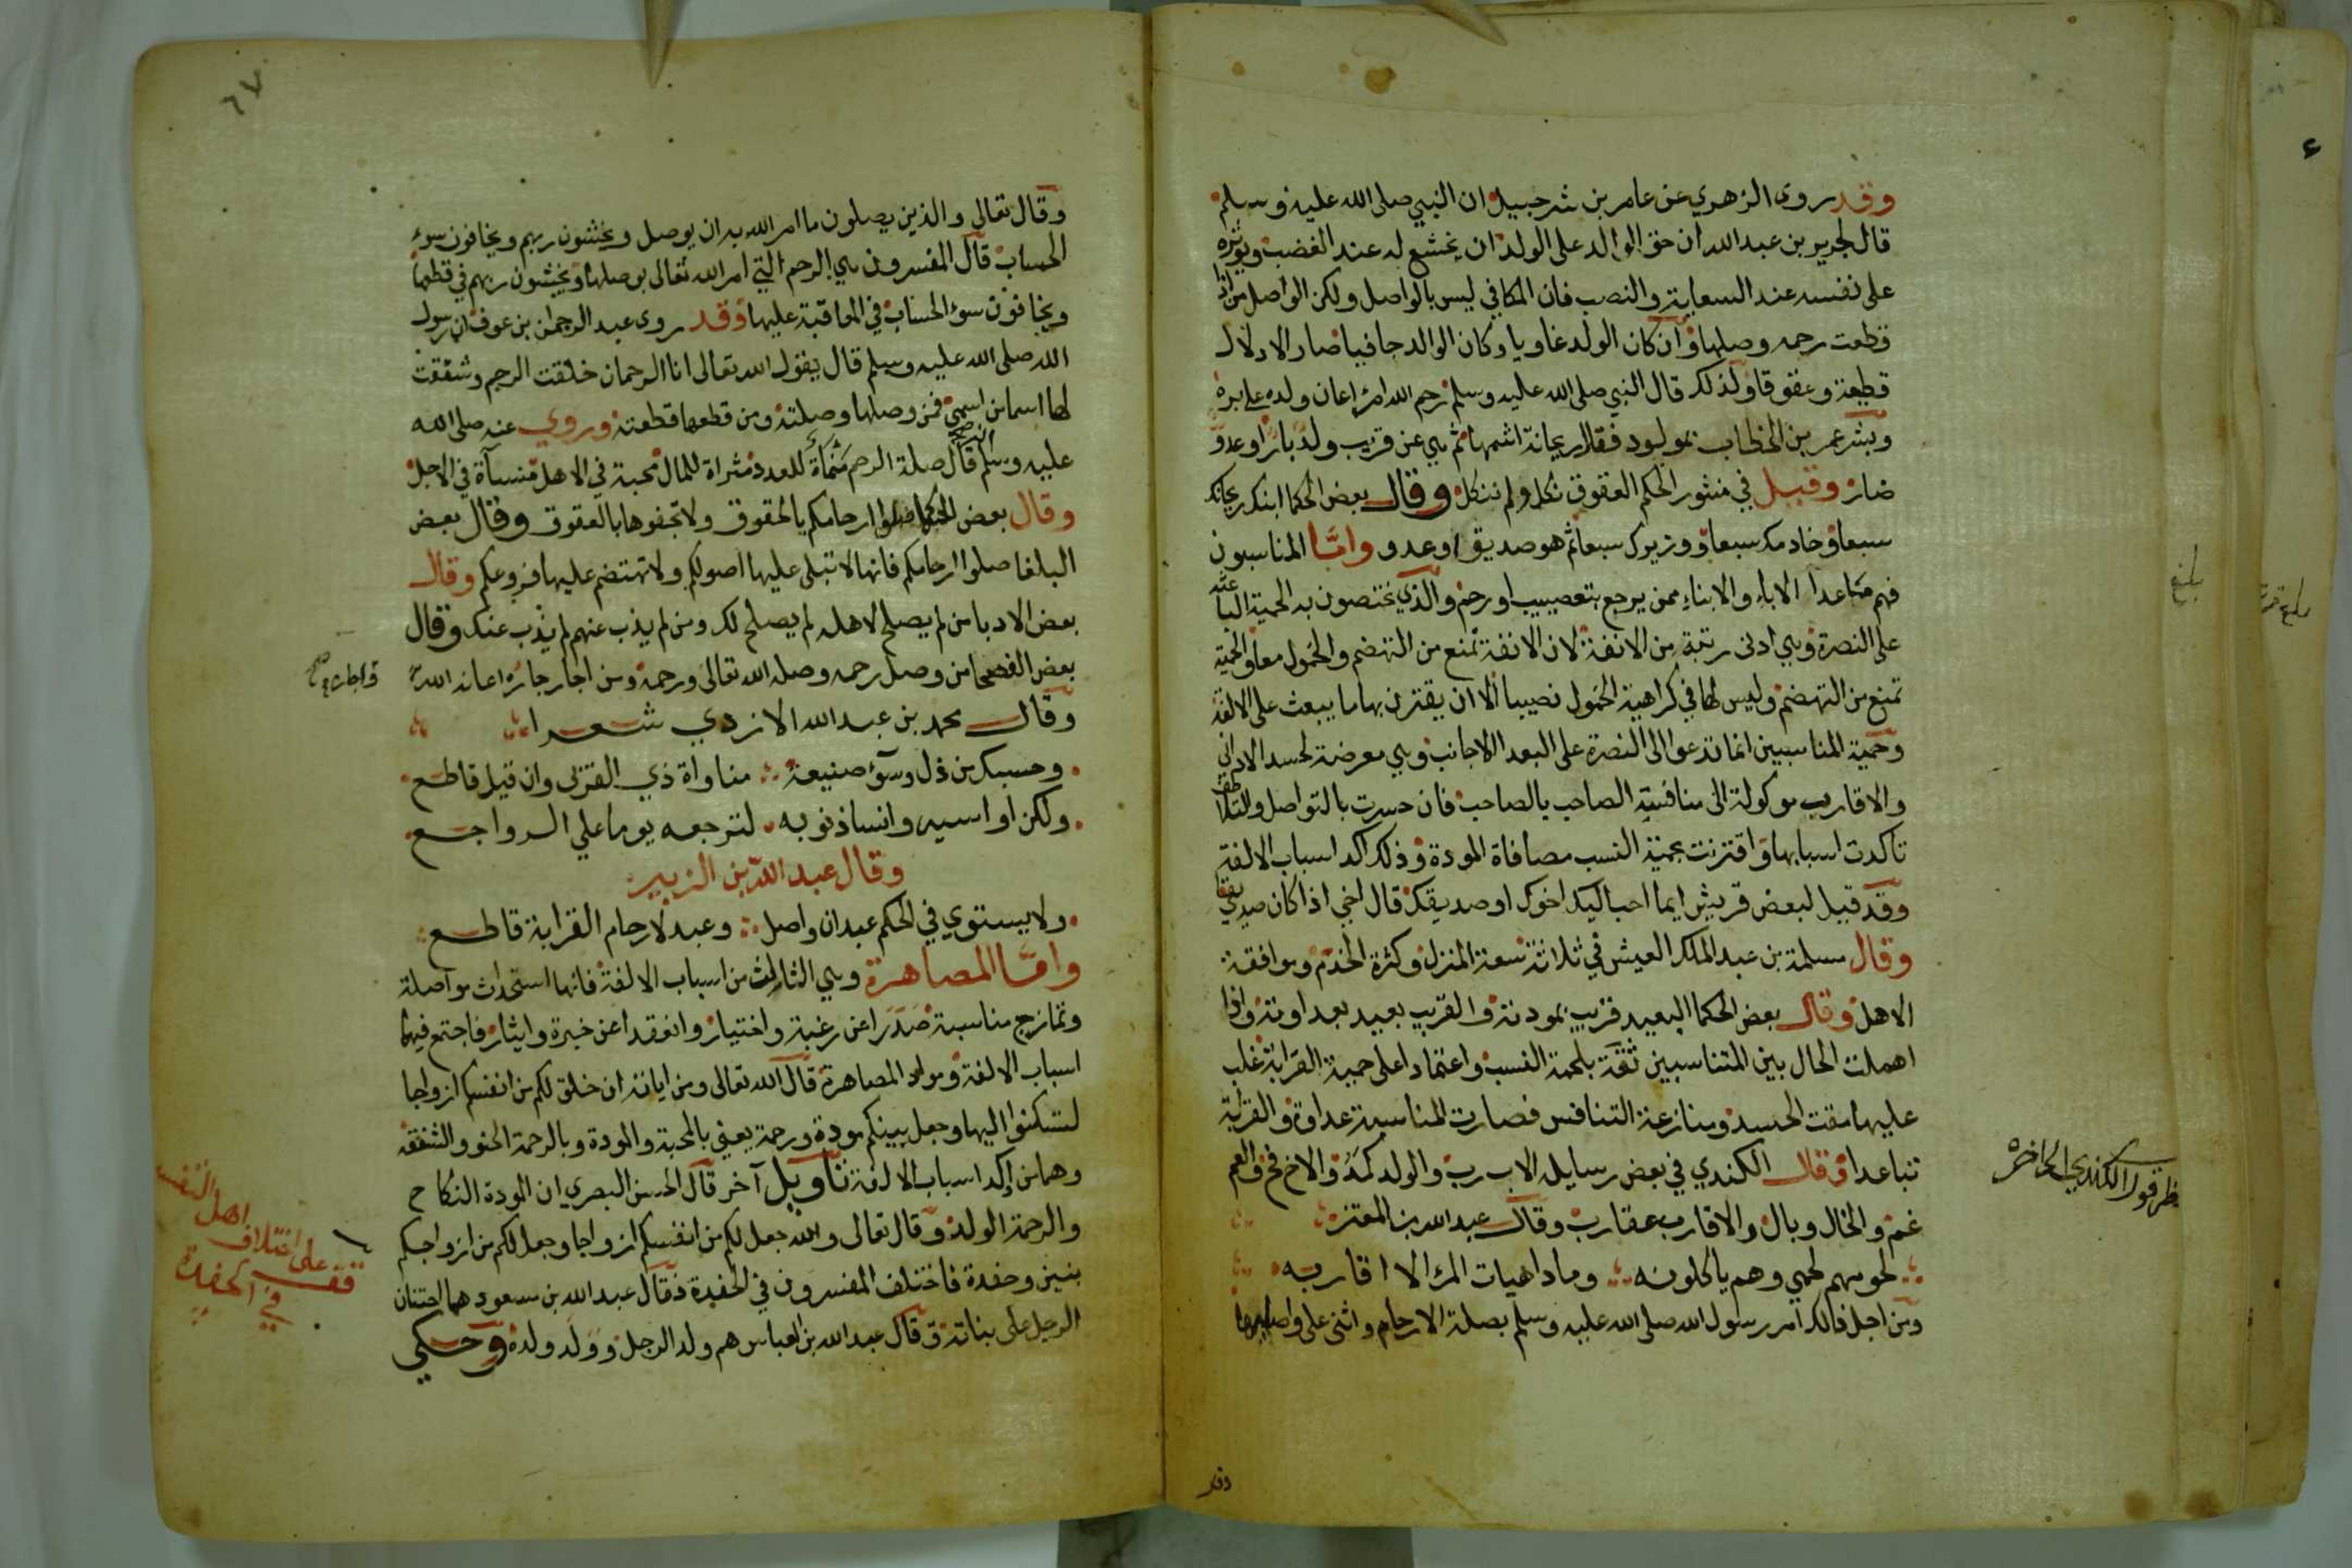 وقد روى الزهري عن عامر بن شرحبيل ان النبي صلى الله عليه وسلم
قال لجرير بن عبد الله ان حق الوالد على الولد ان يخشع له عند الغضب ويوثره
على نفسه عند السعاية والنصب فان المكافي ليس بالواصل ولكن الواصل من اذا
قطعت رحمه وصلها وان كان الولد غاويا وكان الوالد جافيا صار الادلال
قطيعة وعقوقا ولذلك قال النبي صلى الله عليه وسلم رحم الله امرا اعان ولده على بره
وبشر عمر بن الخطاب بمولود فقال ريحانة اشمها ثم هي عن قريب ولد بار او عدو
ضار وقيل في منثور الحكم العقوق ثكل ولم نثكل وقال بعض الحكما ابنك ريحانك
سبعا وخادمك سبعا ووزيرك سبعا ثم هو صديق او عدو واما المناسبون
فهم ما عدا الاباء والابناء ممن يرجع بتعصيب او رحم والذي يختصون به الحمية الباعثة
على النصرة وهي ادنى رتبة من الانفة لان الانفة تمنع من التهضم والخمول معا والحمية
تمنع من التهضم وليس لها في كراهية الخمول نصيب الا ان يقترن بها ما يبعث على الالفة
وحمية المناسبين انما تدعوا الى النصرة على البعدا الاجانب وهي معرضة لحسد الاداني
والاقارب موكولة الى منافسة الصاحب بالصاحب فان حرست بالتواصل والتلاطف
تاكدت اسبابها واقترنت بحمية النسب مصافاة المودة وذلك اكد اسباب الالفة
وقد قيل لبعض قريش ايما احب اليك اخوك او صديقك قال اخي اذا كان صديقي
وقال مسلمة بن عبد الملك العيش في ثلاثة سعة المنزل وكثرة الخدم وموافقة
الاهل وقال بعض الحكما البعيد قريب بمودته والقريب بعيد بعداوته واذا
اهملت الحال بين المتناسبين ثقة بلحمة النسب واعتمادا على حمية القرابة غلب
عليها مقت الحسد ومنازعة التنافس فصارت المناسبة عداوة والقرابة
تباعدا وقال الكندي في بعض رسايله الاب رب والولد كمد والاخ فخ والعم
غم والخال وبال والاقارب عقارب وقال عبد الله بن المعتز
لحومهم لحمي وهم ياكلونه وما داهيات المرء الا اقاربه
ومن اجل ذالك امر رسول الله صلى الله عليه وسلم بصلة الارحام واثنى على واصلها
وقد
قول الكندي الى اخره
بلغ
٦٧
وقال تعالى والذين يصلون ما امر الله به ان يوصل ويخشون ربهم ويخافون سوء
الحساب قال المفسرون هي الرحم التي امر الله تعالى بوصلها ويخشون ربهم في قطعها
ويخافون سوء الحساب في المعاقبة عليها وقد روى عبد الرحمان بن عوف ان رسول
الله صلى الله عليه وسلم قال يقول الله تعالى انا الرحمان خلقت الرحم وشققت
لها اسما من اسمي فمن وصلها وصلته ومن قطعها قطعته وروي عنه صلى الله
عليه وسلم انه قال صلة الرحم منماة للعدد مثراة للمال محبة في الاهل منسأة في الاجل
وقال بعض الحكما صلوا ارحامكم بالحقوق ولا تجفوها بالعقوق وقال بعض
البلغا صلوا ارحامكم فانها لا تبلى عليها اصولكم ولا تهتضم عليها فروعكم وقال
بعض الادبا من لم يصلح لاهله لم يصلح لك ومن لم يذب عنهم لم يذب عنك وقال
بعض الفصحا من وصل رحمه وصله الله تعالى ورحمه ومن اجار جاره اعانه الله
واجاره صح
وقال محمد بن عبد الله الازدي شعرا
وحسبك من ذل وسوء صنيعة مناواة ذي القربى وان قيل قاطع
ولكن اواسيه وانسا ذنوبه لترجعه يوما علي الرواجع
وقال عبد الله بن الزبير
ولا يستوي في الحكم عبدان واصل وعبد لارحام القرابة قاطع
واما المصاهرة وهي الثالث من اسباب الالفة فانها استحداث مواصلة
وتمازج مناسبة صدرا عن رغبة واختيار وانعقدا عن خبرة وايثار فاجتمع فيها
اسباب الالفة ومواد المصاهرة قال الله تعالى ومن اياته ان خلق لكم من انفسكم ازواجا
لتسكنوا اليها وجعل بينكم مودة ورحمة يعني بالمحبة والمودة وبالرحمة الحنو والشفقة
وهما من اكد اسباب الالفة تاويل آخر قال الحسن البصري ان المودة النكاح
والرحمة الولد وقال تعالى والله جعل لكم من انفسكم ازواجا وجعل لكم من ازواجكم
بنين وحفدة فاختلف المفسرون في الحفدة فقال عبد الله بن مسعود هما اختان
الرجل على بناته وقال عبد الله بن العباس هم ولد الرجل وولد ولده وحكي
قف على اختلاف اهل التفسير
في الحفدة